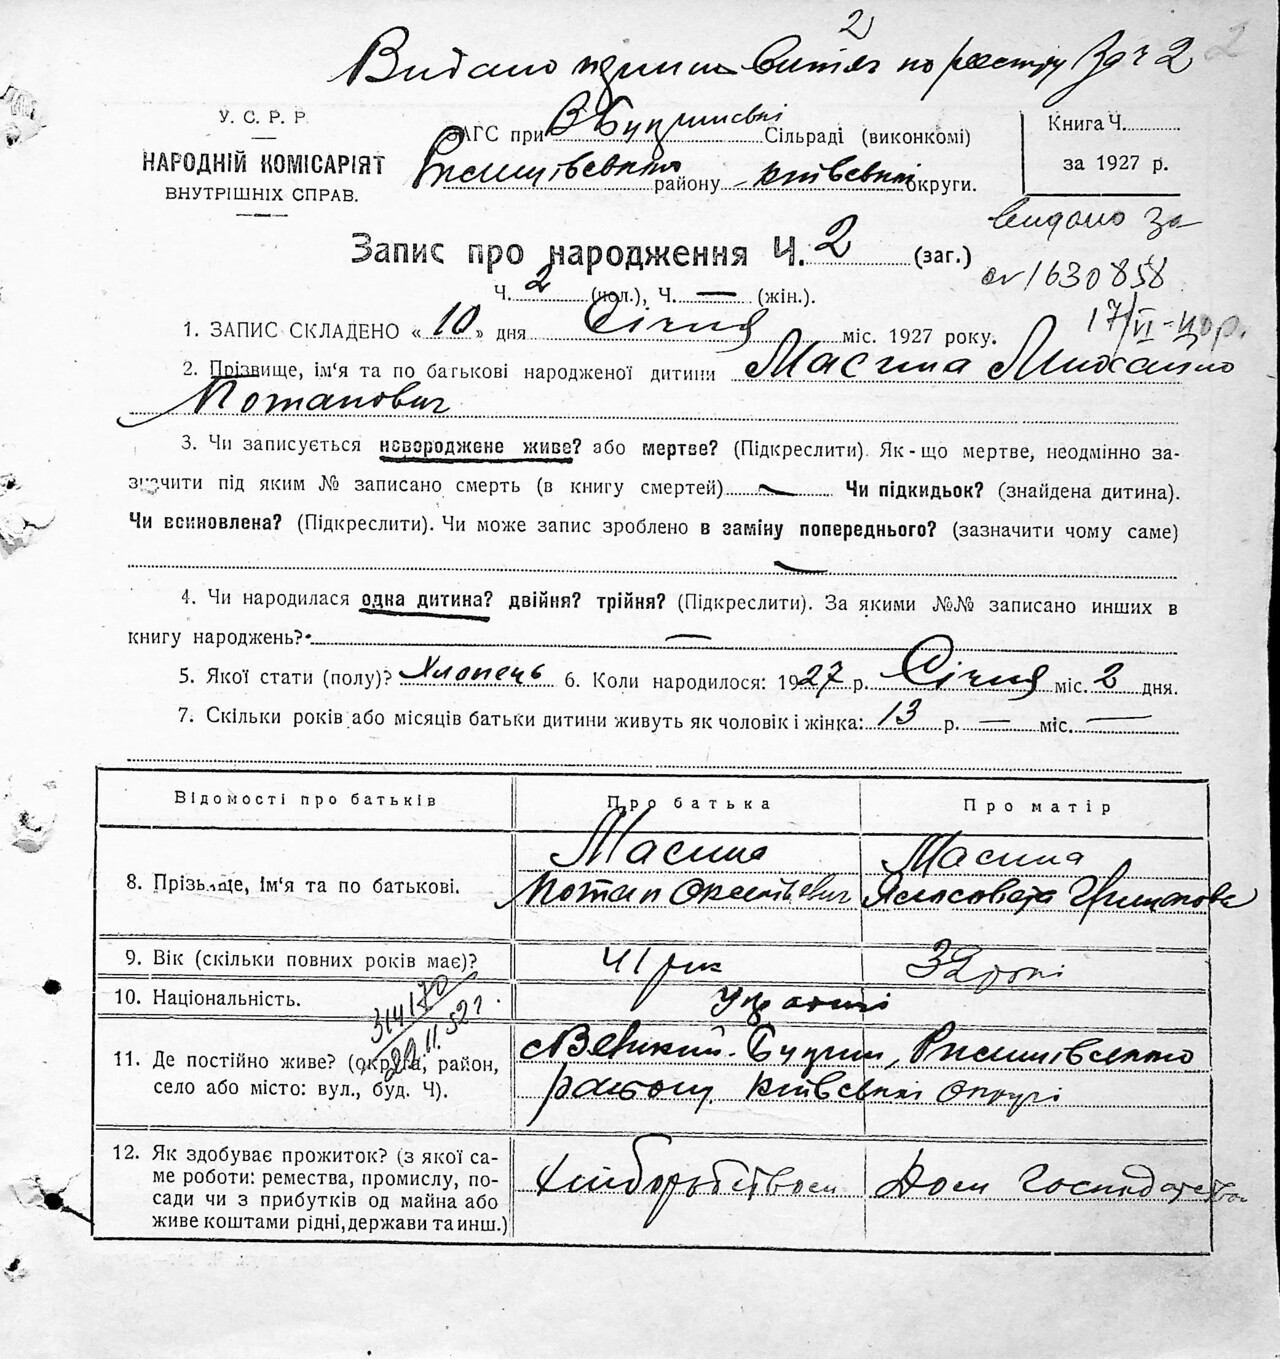 2
2
Видано витяг по реєстру Зд ч 2
У. С. Р. Р.
НАРОДНІЙ КОМІСАРІЯТ
ВНУТРІШНІХ СПРАВ.
ЗАГС при В Бугуїв Сільраді (виконкомі)
району Київської округи.
Книга Ч.
за 1927 р.
видано за
1630858
17/VI-40 р.
Запис про народження Ч. 2 (заг.)
Ч. 2 (чол.), Ч. — (жін.).
1. ЗАПИС СКЛАДЕНО « 10 » дня Січня міс. 1927 року.
2. Прізвище, ім'я та по батькові народженої дитини Масича Михайло
Потапович
3. Чи записується новороджене живе? або мертве? (Підкреслити). Як-що мертве, неодмінно за-
значити під яким № записано смерть (в книгу смертей) — Чи підкидьок? (знайдена дитина).
Чи всиновлена? (Підкреслити). Чи може запис зроблено в заміну попереднього? (зазначити чому саме)
—
4. Чи народилася одна дитина? двійня? трійня? (Підкреслити). За якими №№ записано инших в
книгу народжень? —
5. Якої стати (полу)? Хлопець 6. Коли народилося: 1927 р. Січня міс. 2 дня.
7. Скільки років або місяців батьки дитини живуть як чоловік і жінка: 13 р. — міс. —
Відомості про батьків Про батька Про матір
8. Прізвище, ім'я та по батькові.
Масича
Потап
Масича
9. Вік (скільки повних років має)? 41 рік 32 роки
10. Національність.
31417
11. Де постійно живе? (округа, район,
село або місто: вул., буд. Ч).
с Великий
району Київської округи
12. Як здобуває прожиток? (з якої са-
ме роботи: ремества, промислу, по-
сади чи з прибутків од майна або
живе коштами рідні, держави та инш.)
Хліборобством
Дом Господарство